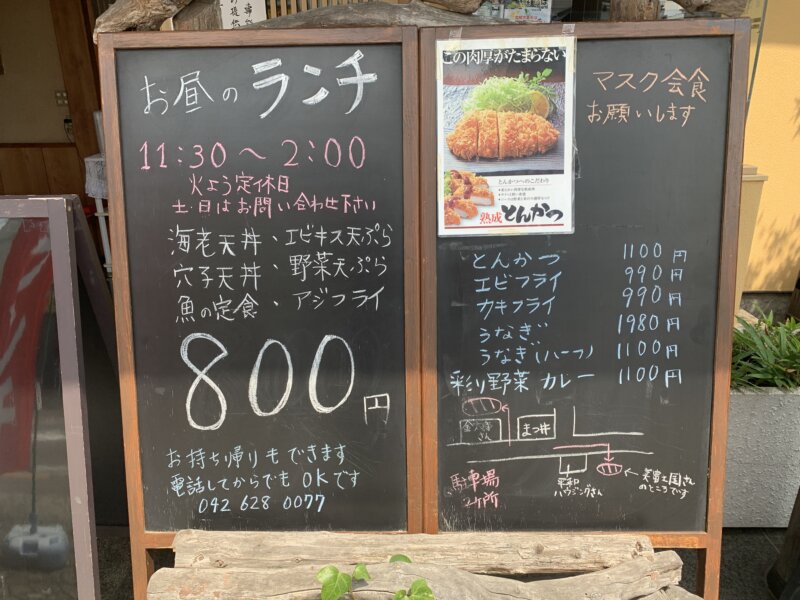 お昼のランチ
11:30〜2:00
火よう定休日
土・日はお問い合わせ下さい
海老天丼・エビキス天ぷら
穴子天丼・野菜天ぷら
魚の定食・アジフライ
800円
お持ち帰りもできます
電話してからでもOKです
042 628 0077
この肉厚がたまらない
とんかつへのこだわり
熟成とんかつ
マスク会食
お願いします
とんかつ 1100円
エビフライ 990円
カキフライ 990円
うなぎ 1980円
うなぎ(ハーフ) 1100円
彩り野菜カレー 1100円
さん
まつ井
駐車場
2ヶ所
平和
ハウジングさん
←美富士園さん
のところです